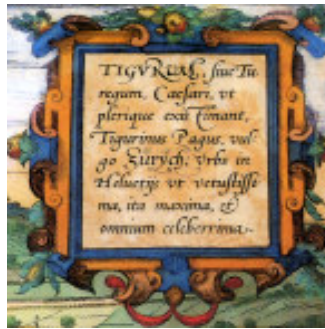 TIGVRVM, siue Tu
regum, Caesari, vt
plerique existimant,
Tigurinus Pagus, vul-
go Zurych, Vrbs in
Heluetijs vt vetustisse
ma, ita maxima, et
omnium celeberrima.